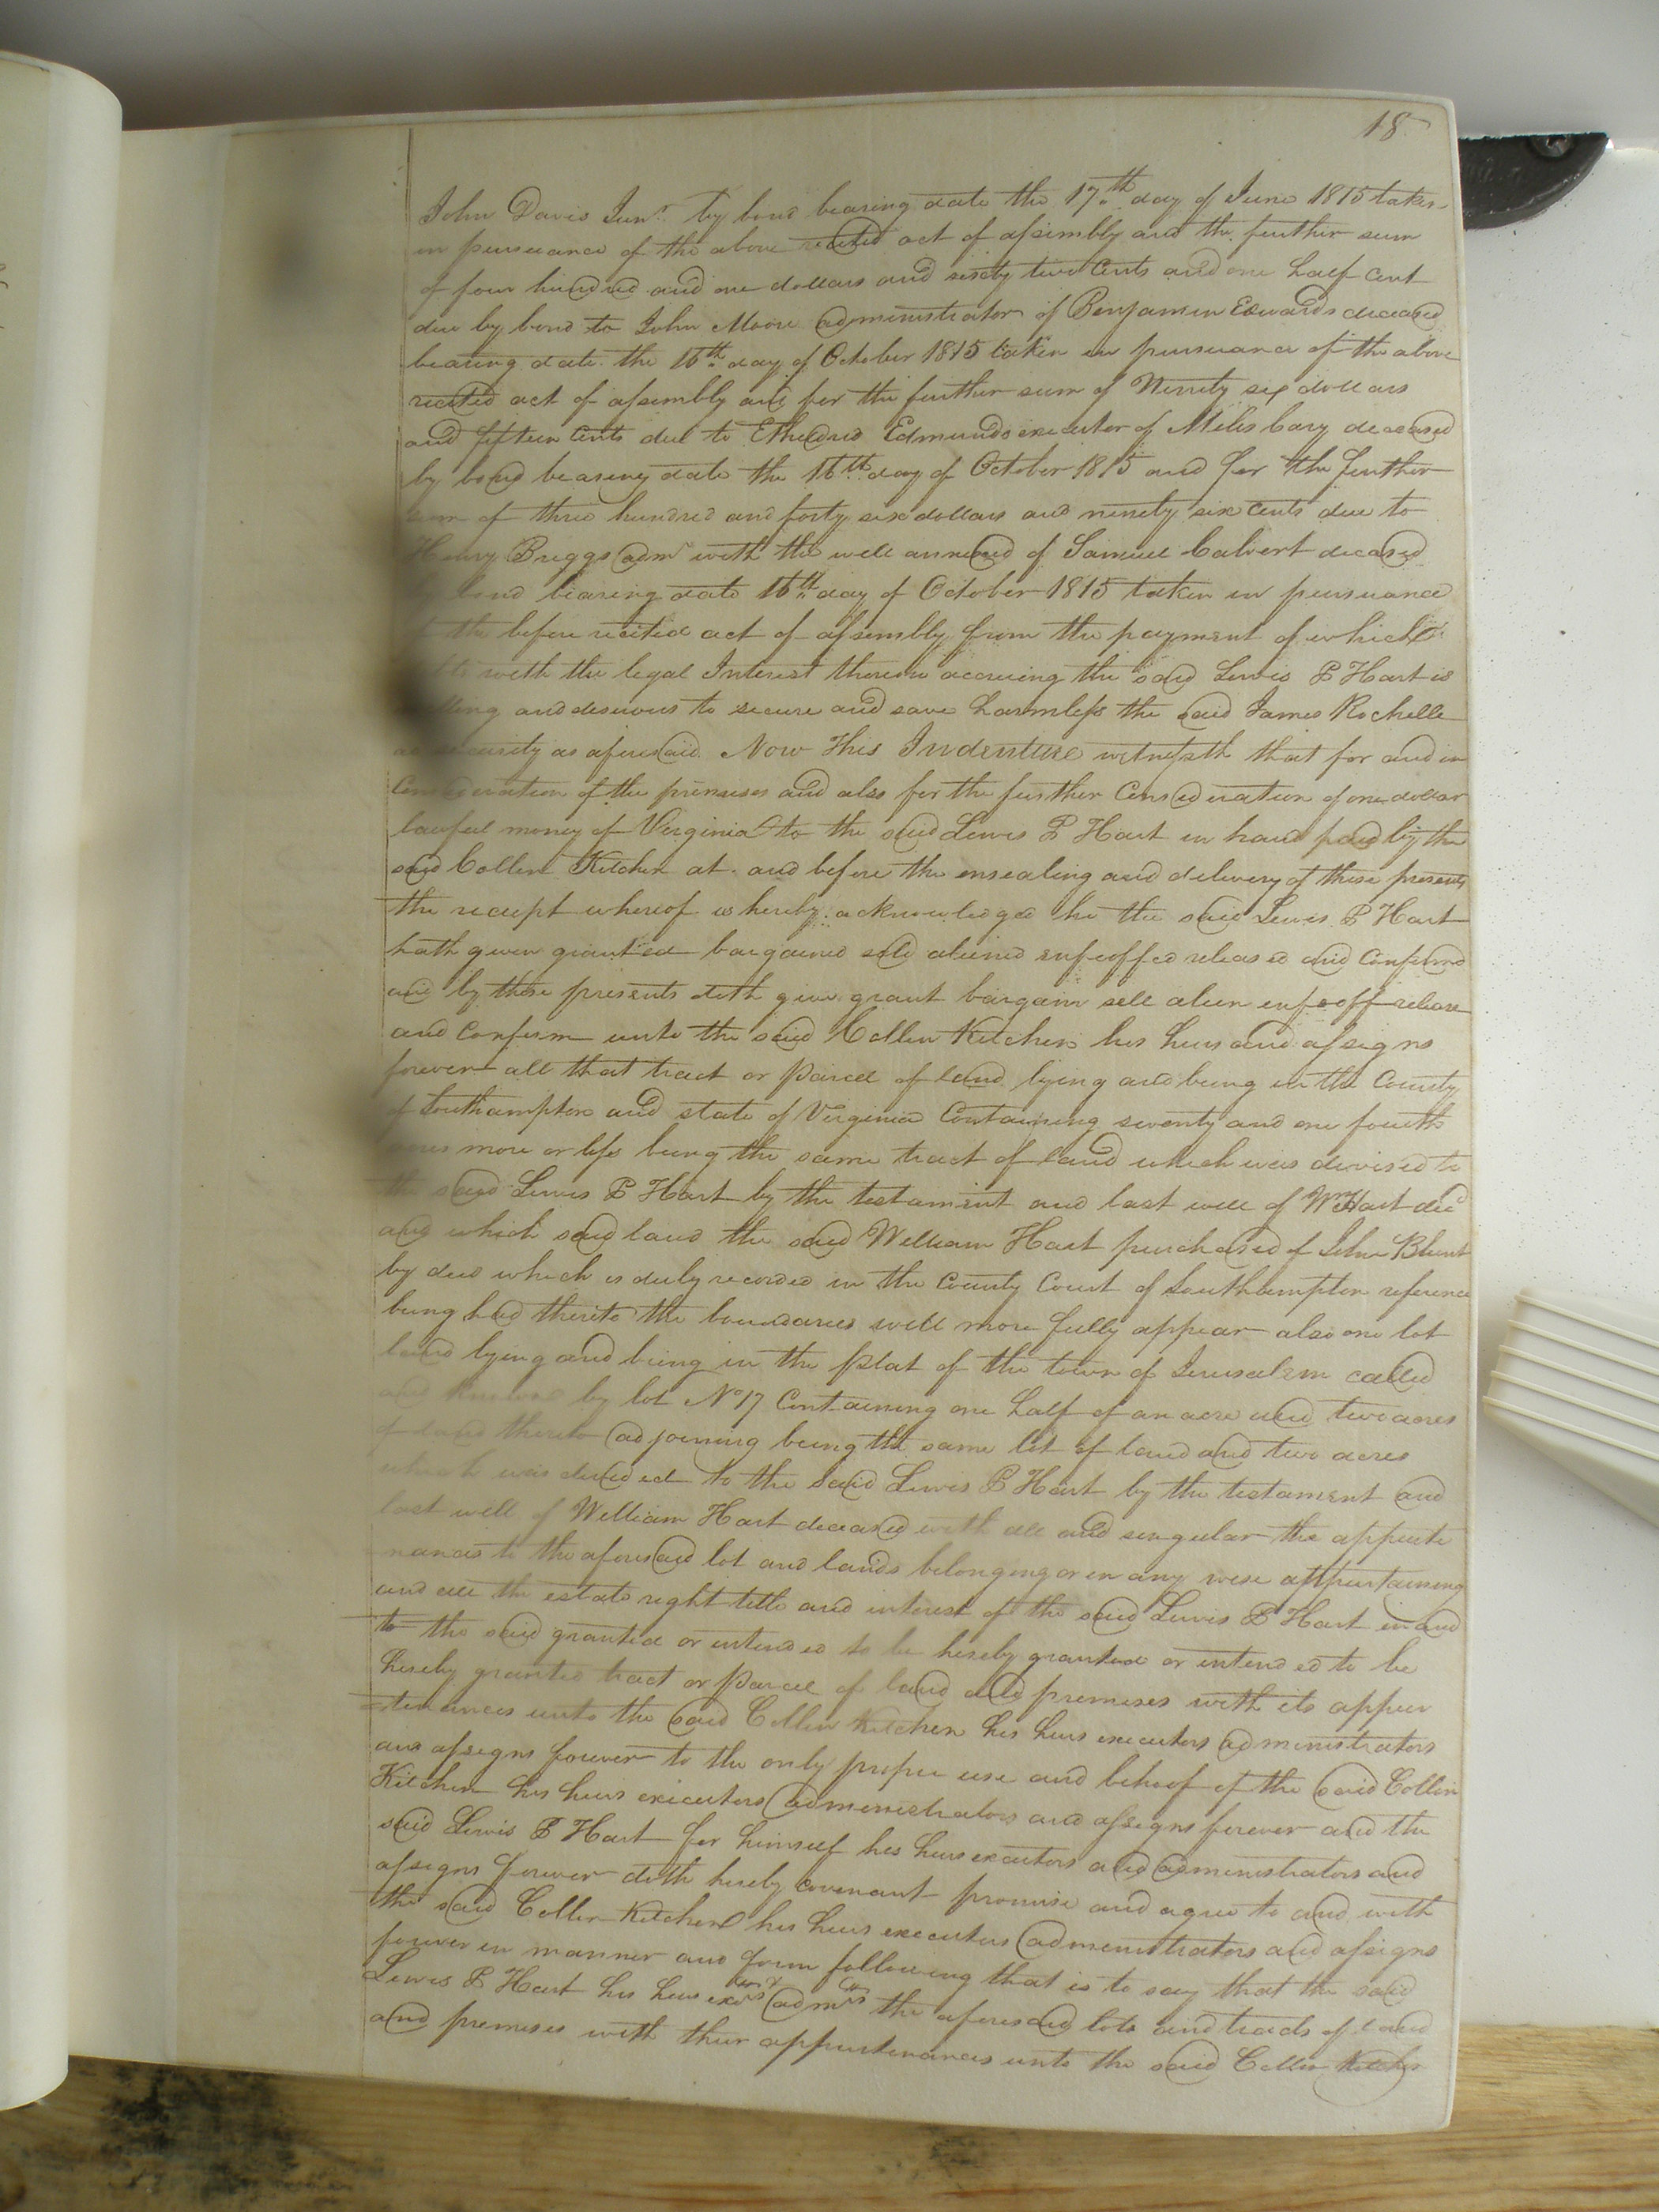 18
John Davis Junr. by bond bearing date the 17th day of June 1815 taken
in pursuance of the above recited act of assembly and the further sum
of four hundred and one dollars and sixty two Cents and one half Cent
due by bond to John Moore administrator of Benjamin Edwards deceased
bearing date the 16th day of October 1815 taken in pursuance of the above
recited act of assembly and for the further sum of Ninety six dollars
and fifteen Cents due to Etheldred Edmunds executor of Miles Cary deceased
by bond bearing date the 16th day of October 1815 and for the further
sum of three hundred and forty six dollars and ninety six Cents due to
Henry Briggs admr with the will annexed of Samuel Calvert deceased
by bond bearing date 16th day of October 1815 taken in pursuance
of the before recited act of assembly from the payment of which
with the legal Interest thereon accruing the said Lewis P Hart is
willing and desirous to secure and save harmless the said James Rochelle
as security as aforesaid. Now This Indenture witnesseth that for and in
Consideration of the premises and also for the further Consideration of one dollar
lawful money of Virginia to the said Lewis P Hart in hand paid by the
said Collin Kitchen at and before the ensealing and delivery of these presents
the receipt whereof is hereby acknowledged he the said Lewis P Hart
hath given granted bargained sold aliened enfeoffed released and Confirmed
and by these presents doth give grant bargain sell alien enfeoff release
and Confirm unto the said Collin Kitchen his heirs and assigns
forever all that tract or Parcel of land lying and being in the County
of Southampton and state of Virginia Containing seventy and one fourth
acres more or less being the same tract of land which was devised to
the said Lewis P Hart by the testament and last will of Wm Hart decd
and which said land the said William Hart purchased of John Blunt
by deed which is duly recorded in the County Court of Southampton reference
being had thereto the boundaries will more fully appear also one lot
land lying and being in the plat of the town of Jerusalem called
and known by lot No 17 Containing one half of an acre and two acres
of land thereto adjoining being the same lot of land and two acres
which was devised to the said Lewis P Hart by the testament and
last will of William Hart deceased with all and singular the appurte
nances to the aforesaid lot and lands belonging or in any wise appurtaining
and all the estate right title and interest of the said Lewis P Hart in and
to the said granted or intended to be hereby granted or intended to be
hereby granted tract or Parcel of land and premises with its appur
-tenances unto the said Collin Kitchen his heirs executors administrators
and assigns forever to the only proper use and behoof of the said Collin
Kitchen his heirs executors administrators and assigns forever and the
said Lewis P Hart for himself his heirs executors and administrators and
assigns forever doth hereby covenant promise and agree to and with
the said Collin Kitchen his heirs executors administrators and assigns
forever in manner and form following that is to say that the said
Lewis P Hart his heirs exors admrs the aforesaid lots and tracts of land
and premises with their appurtenances unto the said Collin Kitchen